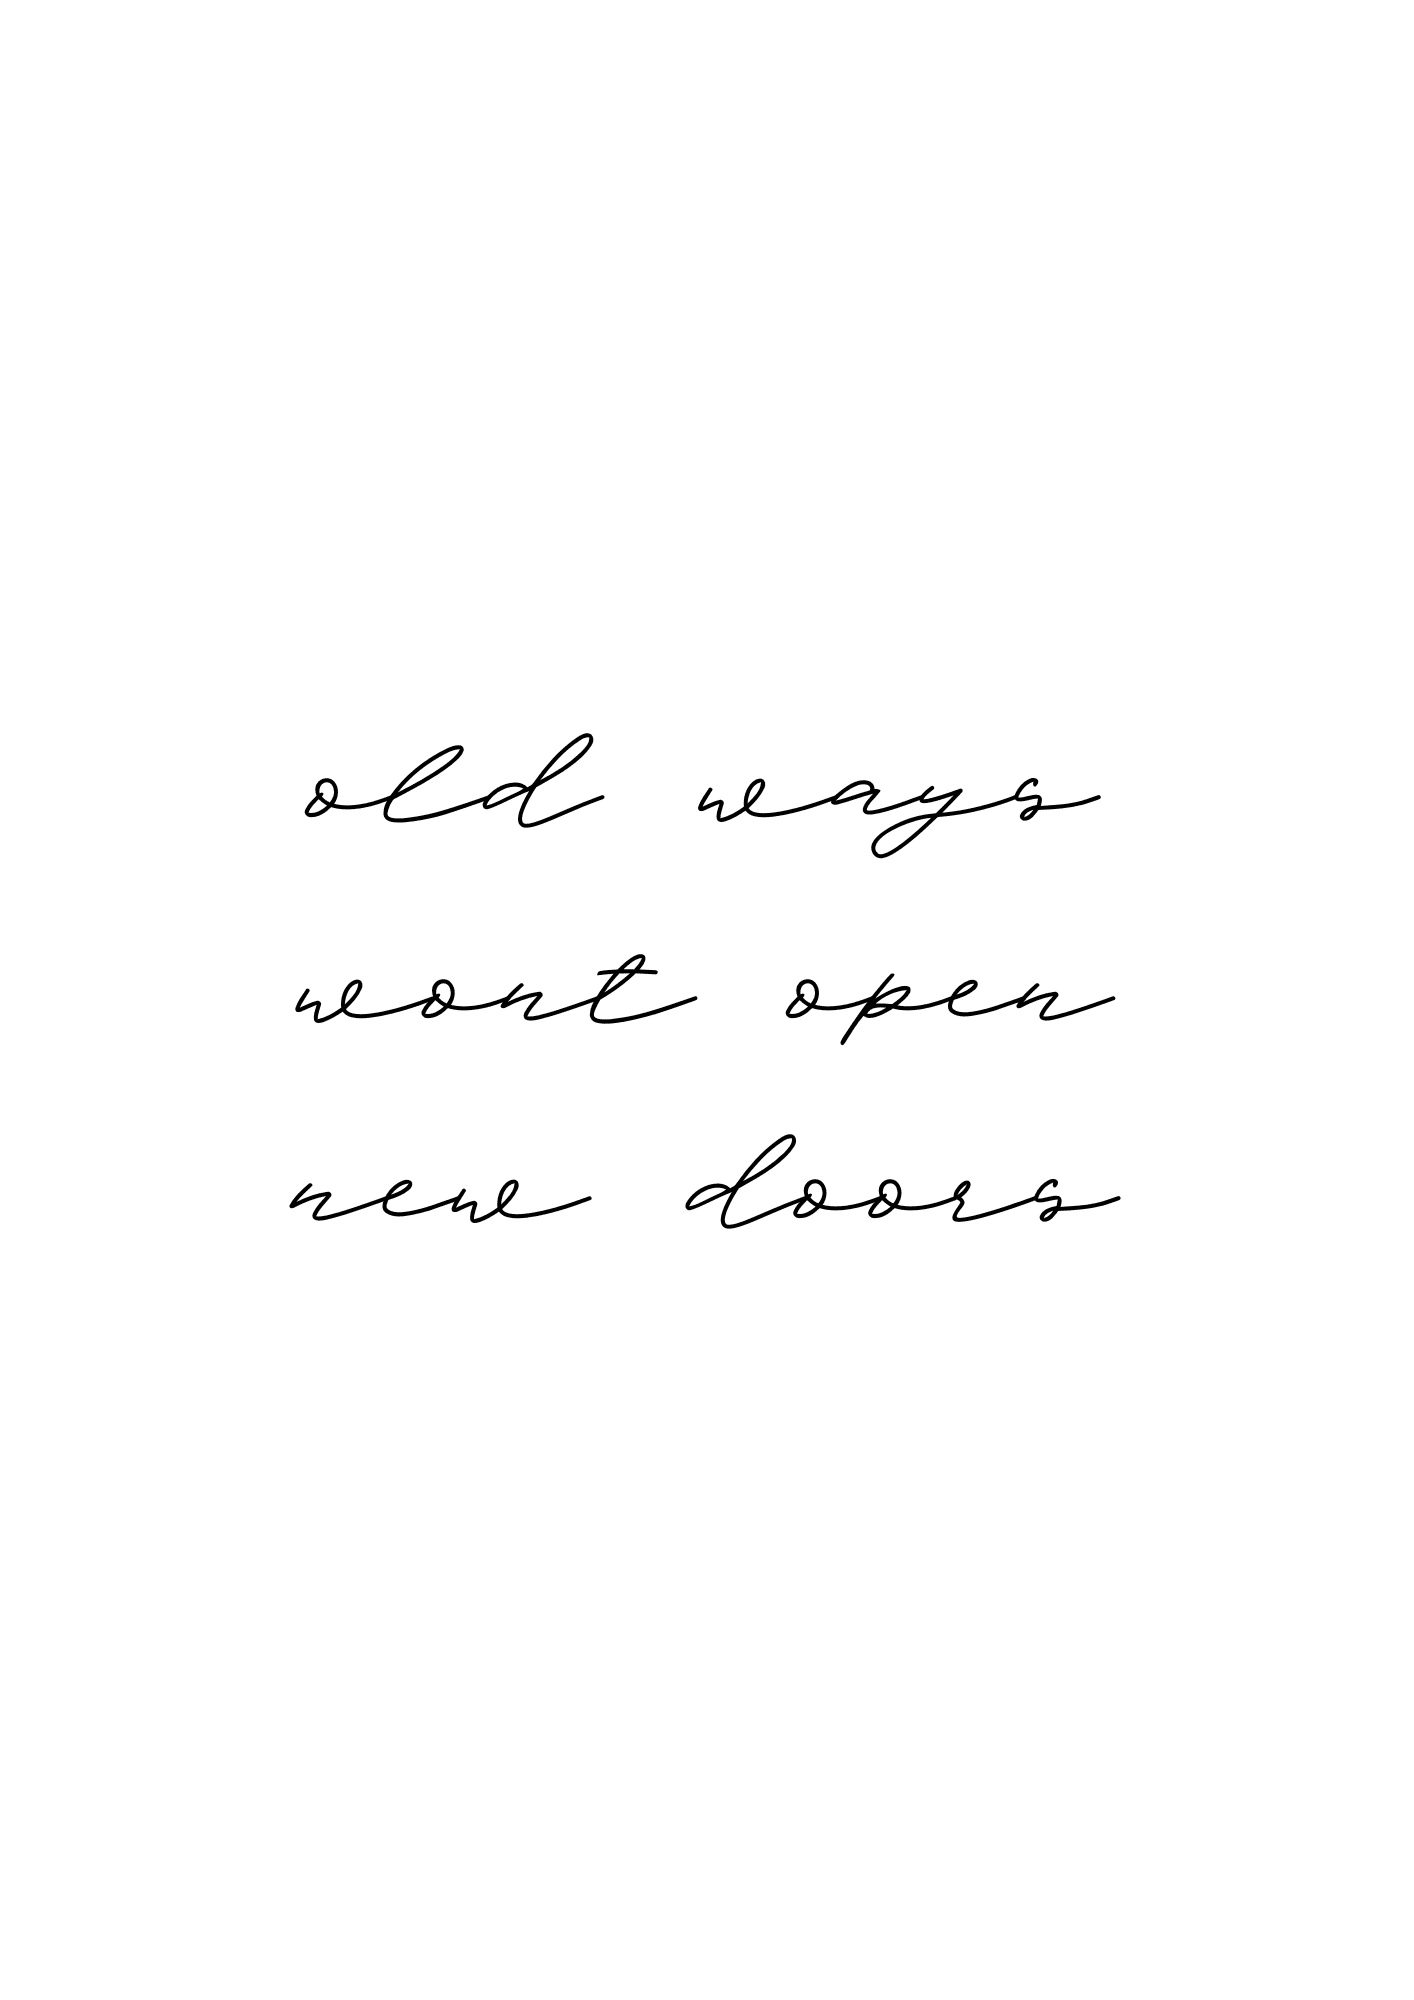 old ways
wont open
new doors